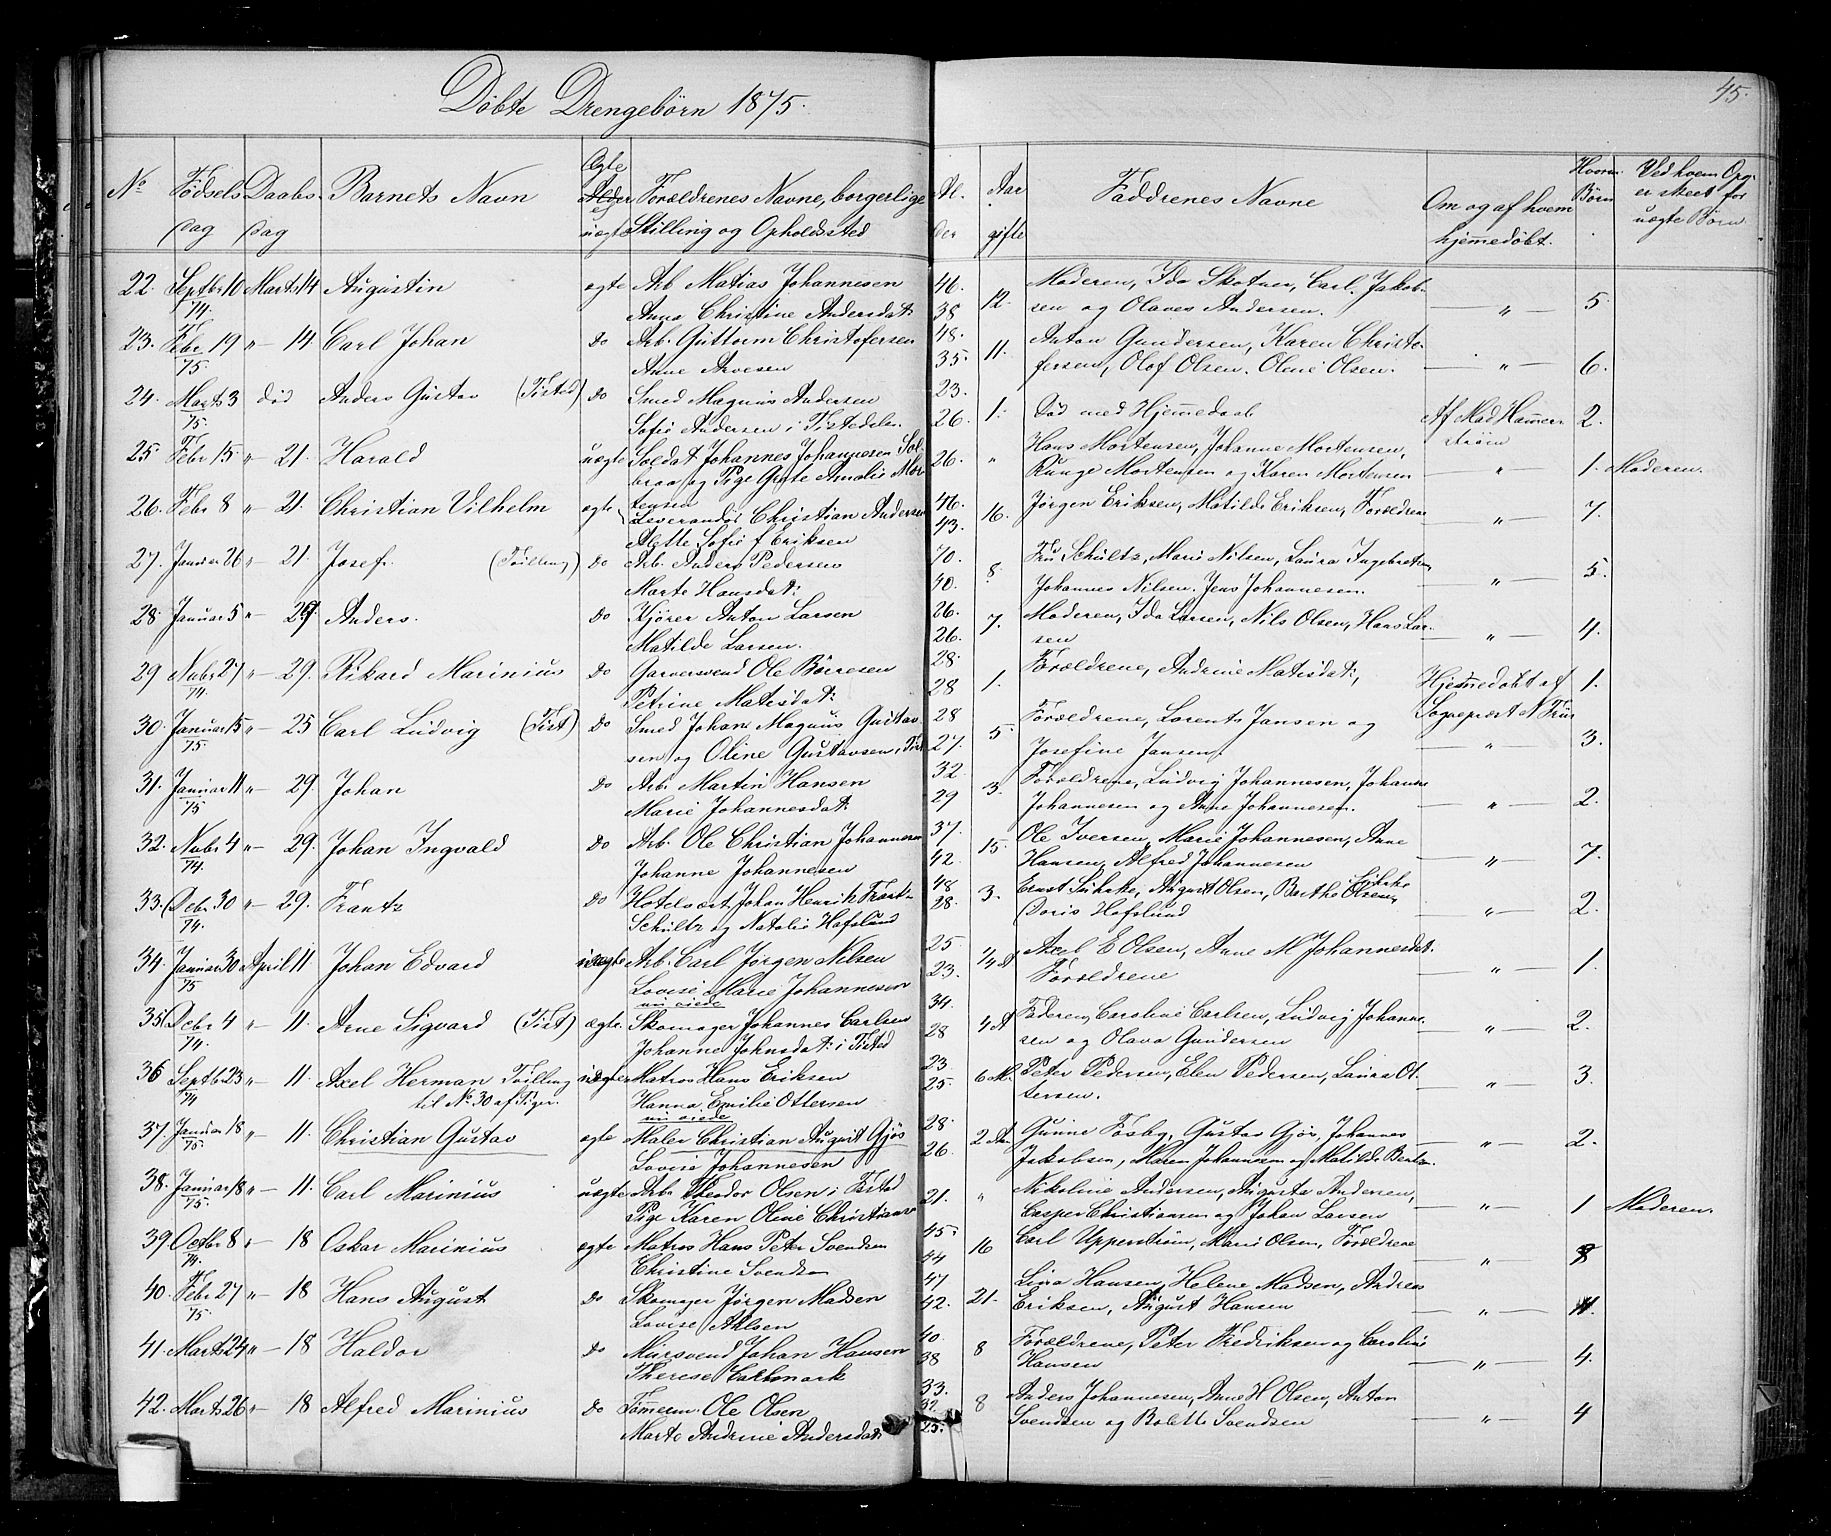 Døbte Drengebørn 1875.
45.
No Fødsels Dag Daabs Dag Barnets Navn Ægte el uægte Forældrenes Navne, borgerlige Stilling og Opholdssted Al. der Aar gifte Faddrenes Navne Om og af hvem hjemmedøbt. Børn Ved hvem Org. er skeet for uægte Børn
22. Septbr 10 Marts 14 Augustin ægte Arb Matias Johannesen 46. 12. Moderen, Ida Skotner, Carl Jakob- 5
74. Anna Christine Andersdat: 38 sen og Olaves Andersen. — " —
23. Febr 19 " — 14 Carl Johan do Arb. Guttorm Christofersen 48. 11. Anton Gundersen, Karen Christo-
75. Anne Arvesen 35. fersen, Olof Olsen. Oline Olsen. — " — 6.
24. Marts 3 død Anders Gustav (Tisted) do Smed Magnus Andersen 23. 1. Død med Hjemmedaab Af Mad Hammer- 2.
75. Sofie Andersen i Tistedalen. 26. strøm
25. Febr 15 " — 21. Harald uægte Soldat Johannes Johannesen Sol- 26. " Hans Mortensen, Johanne Mortensen, " 1. Moderen.
braa og Pige Grete Amalie Mor- Runge Mortensen og Karen Mortensen
26. Febr 8 " — 21. Christian Vilhelm ægte tensen 46. 16. Jørgen Eriksen, Matilde Eriksen, Forældrene " 7.
Leverandør Christian Andersen 43.
Alette Sofie f Eriksen
27. Januar 26 " — 21. Josef. (Tvilling) do Arb. Anders Pedersen 70. 8. Fru Schultz, Marie Nilsen, Laura Ingebretsen, 5.
Marte Hansdat: 40. Johannes Nilsen. Jens Johannesen. — " —
28. Januar 5 " — 29 Anders. do Kjører Anton Larsen 26. 7. Moderen, Ida Larsen, Nils Olsen, Hans Lar- 4.
Matilde Larsen. 26. sen — " —
29 Nobr 27 " — 29. Rikard Marinius do Garversvend Ole Børresen 28. 1. Forældrene, Andrine Matisdat:, Hjemmedøbt af 1.
74. Petrine Matisdat: 28 Sogneprest N Friis
30. Januar 15 " — 25 Carl Ludvig (Tist) do Smed Johan Magnus Gustav- 28 5. Forældrene, Lorents Jansen og
75. sen og Oline Gustavsen, Tist 27. Josefine Jansen. — " — 3.
31. Januar 11 " — 29. Johan do Arb. Martin Hansen 32. 3. Forældrene, Ludvig Johannesen, Johanne
75 Marie Johannesdat: 29 Johannesen og Anne Johannesen. — " — 2.
32. Nobr 4 " — 29. Johan Ingvald do Arb. Ole Christian Johannesen 37. 15. Ole Iversen, Marie Johannesen, Anne
74. Johanne Johannesen 42. Hansen, Alfred Johannesen — " — 7.
33. Decbr 30 " — 29. Frantz do Hotelvært Johan Henrik Frants 48 3. Ernst Suhrke, August Olsen, Barthe Olsen,
74. Schultz og Natalie Hafslund 28. Doris Hafslund — " — 2.
34. Januar 30 April 11 Johan Edvard uægte Arb. Carl Jørgen Nilsen 25. 1/4 A Axel E Olsen, Anne M Johannesdat.
75 Lovise Marie Johannesen 23. Forældrene — " — 1.
nu viede
35. Debr 4 " — 11. Arne Sigvard (Tist) ægte. Skomager Johannes Carlsen 34. 4 A Faderen, Caroline Carlsen, Ludvig Johanne-
74. Johanne Johnsdat: i Tisted 28 sen og Olava Gundersen " 2.
36 Septbr 23 " — 11. Axel Herman Tvilling uægte Matros Hans Eriksen 23 6 M. Peter Pedersen, Elen Pedersen, Laura Ot-
74 til No 30 af Piger. Hanna Emilie Ottersen 25. tersen. " 3.
nu viede
37. Januar 18 " — 11. Christian Gustav ægte Maler Christian August Gjøs 28. 2 Aar Gunne Fosby, Gustav Gjør, Johannes
75. Lovise Johannesen 26. Jakobsen, Maren Johannesen og Matilde — " — 2.
38. Januar 18 " — 11. Carl Marinius uægte Arb. Theodor Olsen i Tisted 21. " Nikoline Andersen, Augusta Andersen,
75. Pige Karen Oline Christians Casper Christiansen og Johan Larsen — " — 1 Moderen.
39. Octbr 8 " — 18 Oskar Marinius ægte Matros Hans Peter Svendsen 45. 16 Carl Upperstrøm, Marie Olsen, Forældrene
74. Christine Svendsen 44 — " — 8
40. Febr 27 " — 18 Hans August do Skomager Jørgen Madsen 47 21. Lina Hansen, Helene Madsen, Andreas
75 Lovise Ahlsen 42. Eriksen, August Hansen — " —
41. Marts 24 " — 18 Haldor do Mursvend Johan Hansen 40. 8 Forældrene, Peter Fredriksen og Caroline
Therese Carlsmark 38 Hansen — " — 4.
42. Marts 26 " — 18 Alfred Marinius do Tømerm. Ole Olsen 33. 8 Anders Johannesen, Anne H Olsen, Anton
Marte Andrine Andersdat: 32. Svendsen og Bolette Svendsen — " — 4
25.